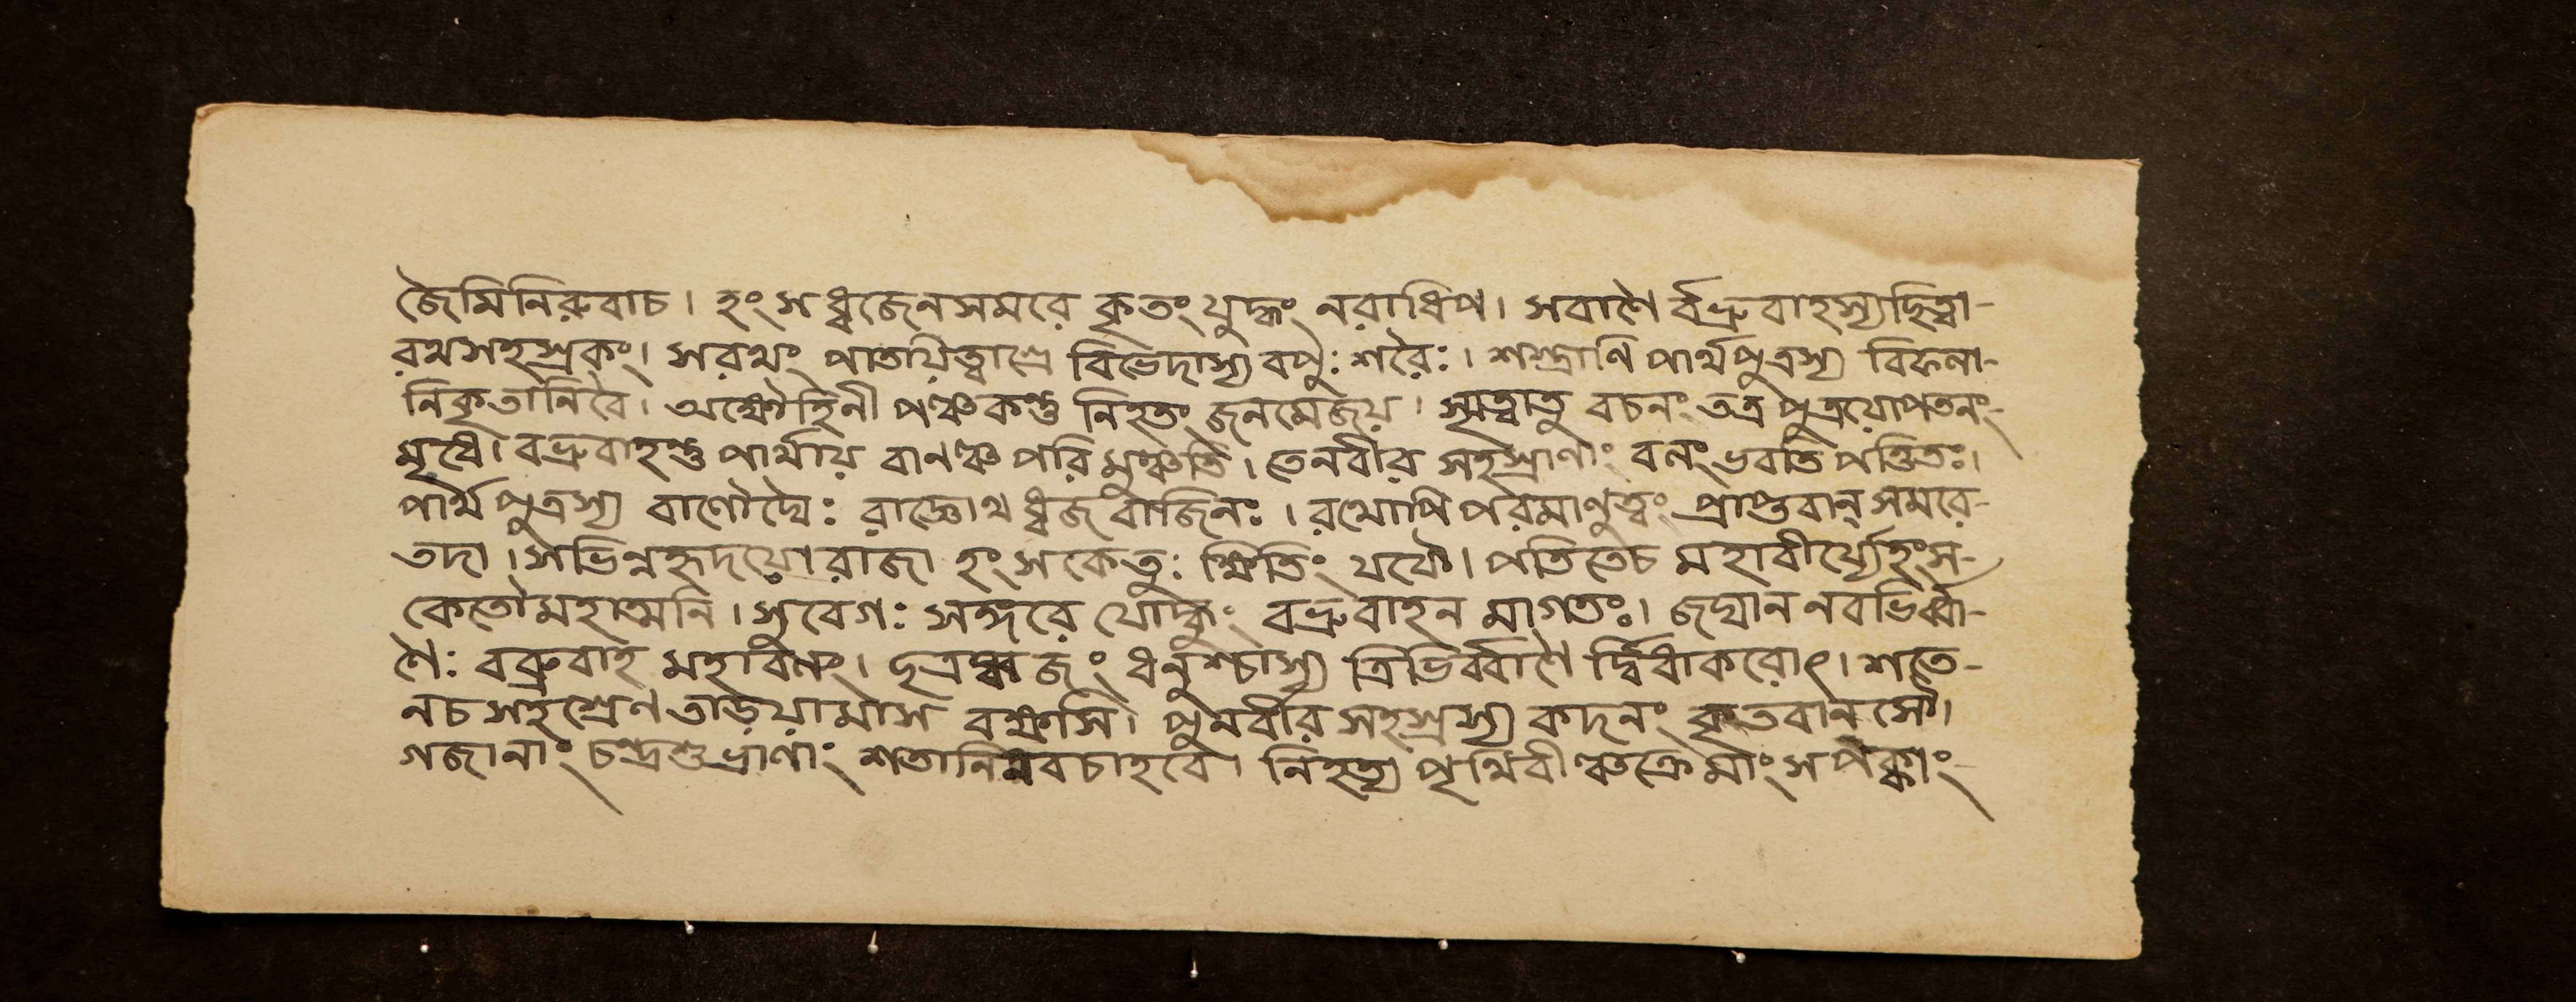 জৈমিনিরুবাচ। হংসধ্বজেনসমরে কৃতং যুদ্ধং নরাধিপ। সবাণৈ র্বভ্রুবাহস্যছিত্বা-
রথসহস্রকং। সরথং পাতয়িত্বাশ্রে বিভেদাস্য বপুঃ শরৈঃ। শস্ত্রাণি পার্থপুত্রস্য বিফলা-
নিকৃতানিবৈ। অক্ষৌহিনী পঞ্চকন্তু নিহতং জনমেজয়। স্মৃত্বাতু বচনং তত্র পুত্রযোপতনং-
মৃধে। বভ্রুবাহন্তু পার্থায় বানঞ্চ পরিমুঞ্চতি। তেনবীর সহস্রাণাং বলং ভবতি পণ্ডিতঃ।
পার্থ পুত্রস্য বাণৌঘৈঃ রাজ্ঞোথ ধ্বজবাজিনঃ। রথোপি পরমাণুত্বং প্রাপ্তবান্ সমরে-
তদা। সভিন্নহৃদয়ো রাজা হংসকেতুঃ ক্ষিতিং যযৌ। পতিতেচ মহাবীর্য্যেহংস-
কেতৌমহাত্মনি। সুবেগঃ সঙ্গরে যোদ্ধুং বভ্রুবাহন মাগতঃ। জঘান নবভির্ব্বা-
ণৈঃ বব্রুবাহ মহাবলং। ছত্রধ্বজং ধনুশ্চাস্য ত্রিভির্ব্বাণৈ র্দ্বিধাকরোৎ। শতে-
নচ সহশ্রেণ তাড়য়ামাস বক্ষসি। পুনর্বীর সহস্রস্য কদনং কৃতবানসৌ।
গজানাং চন্দ্রশুভ্রাণাং শতানিনবচাহবে। নিহত্য পৃথিবীঞ্চক্রেমাংসপঙ্কাং-